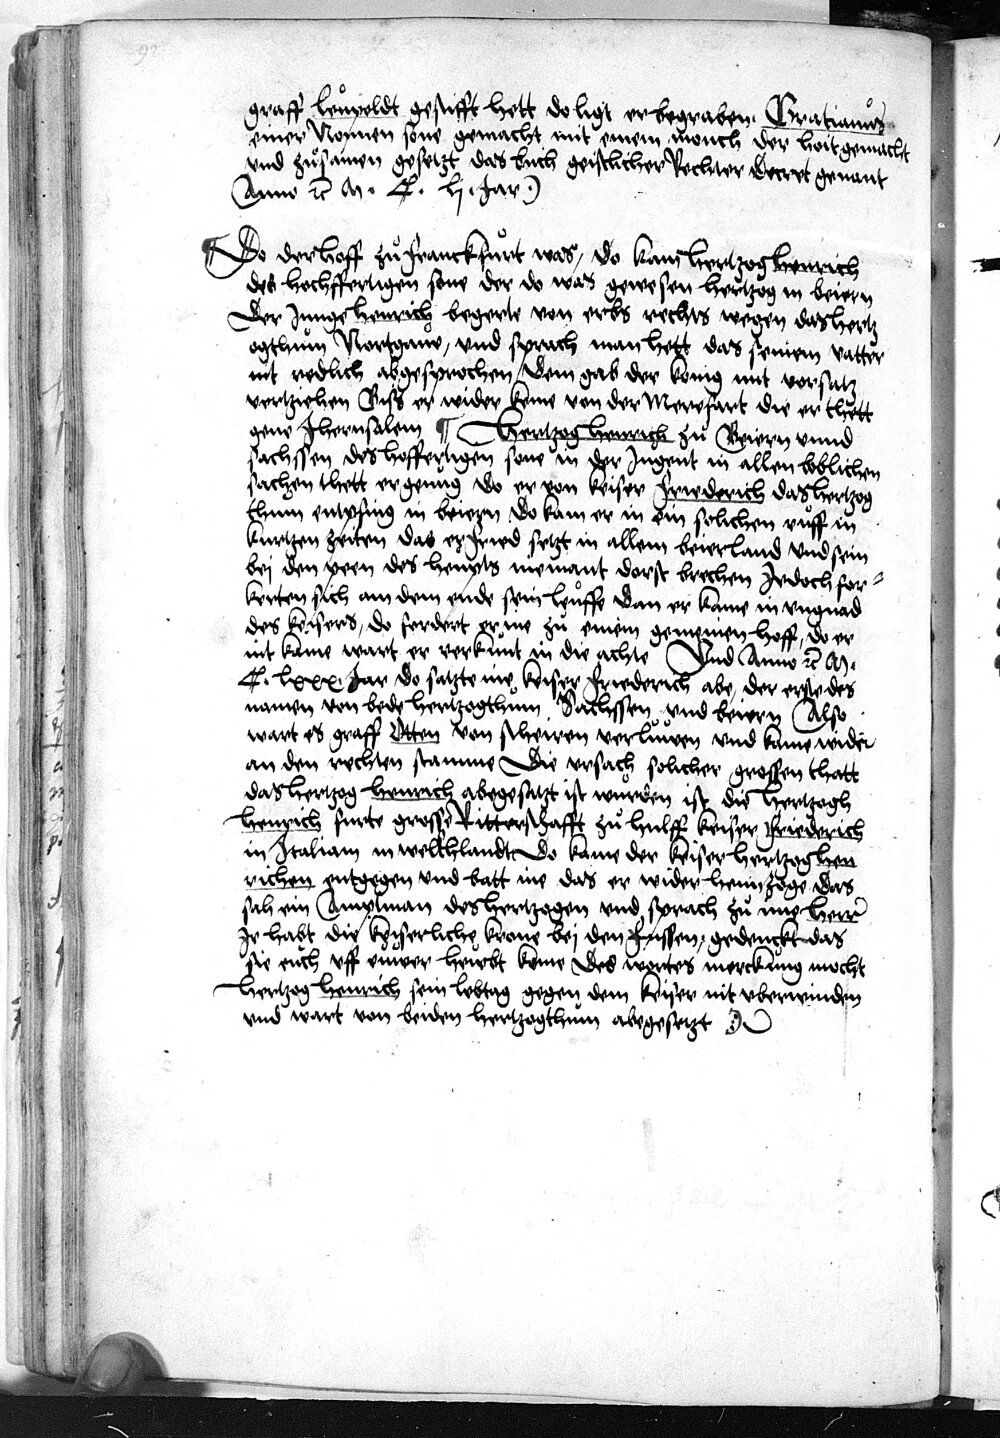 graff leupoldt gestifft hett do ligt er begraben. Gratianus
einer Nonnen sone gemacht mit einem monch der hoit gemacht
vnd zůsamen gesetzt das buch geistlicher Rechter Decret genant
Anno M. C. lj. Jar
Do der hoff zů franckfůrt was, do kam hertzog henrich
des hochffertigen sone der do was gewesen hertzog in beiern
Der Junge henrich begerte von erbs rechts wegen das hertz
ogthům Nortgaw, vnd sprach man hett das seinem vatter
nit redlich abgesprochen, Dem gab der konig mit vorsatz
vertziehen Biss er wider keme von der Merefart die er thett
gene Jherusalem ¶ Hertzog henrich zů Beiern vnnd
sachssen des hoffertigen sone in der Jugent in allen loblichen
sachen thett er genug do er von keiser friederich das hertzog
thum entpfing in beiern Do kam er in ein solichen růff in
kurtzen zeiten das er fried setzt in allem beierland vnd sein
bei den peen des heupts niemant dorst brechen Jedoch for-
kerten sich am dem ende sein leůffe Dan er kame in vngnad
des keisers, do fordert er ine zů einem gemeinen hoff, do er
nit kame wart er verkůnt in die achte Vnd Anno M.
C. lxxx. Jar do satzte ine keiser friederich abe, der erste des
namen von bede hertzogthum, Sachssen vnd beiern Also
wart es graff Otten von scheiren verluwen vnd kame wider
an den rechten stamme Die vrsach solicher grossen thatt
das hertzog henrich abegesatzt ist wurden ist die hertzogh
henrich furte grosse Ritterschafft zů hulff keiser friederich
in Italiam in welchlandt Do kame der keiser hertzog hen
richen entgegen vnd batt ine das er wider heim zoge Das
sah ein Amptman des hertzogen vnd sprach zů ime herr
Jr habt die keiserliche krone bei den fussen, gedenckt das
sie euch vff euwer heubt kome Des wortes merckung mocht
hertzog henrich sein lebtag gegen dem keiser nit vberwinden
vnd wart von beiden hertzogthům abegesetzt